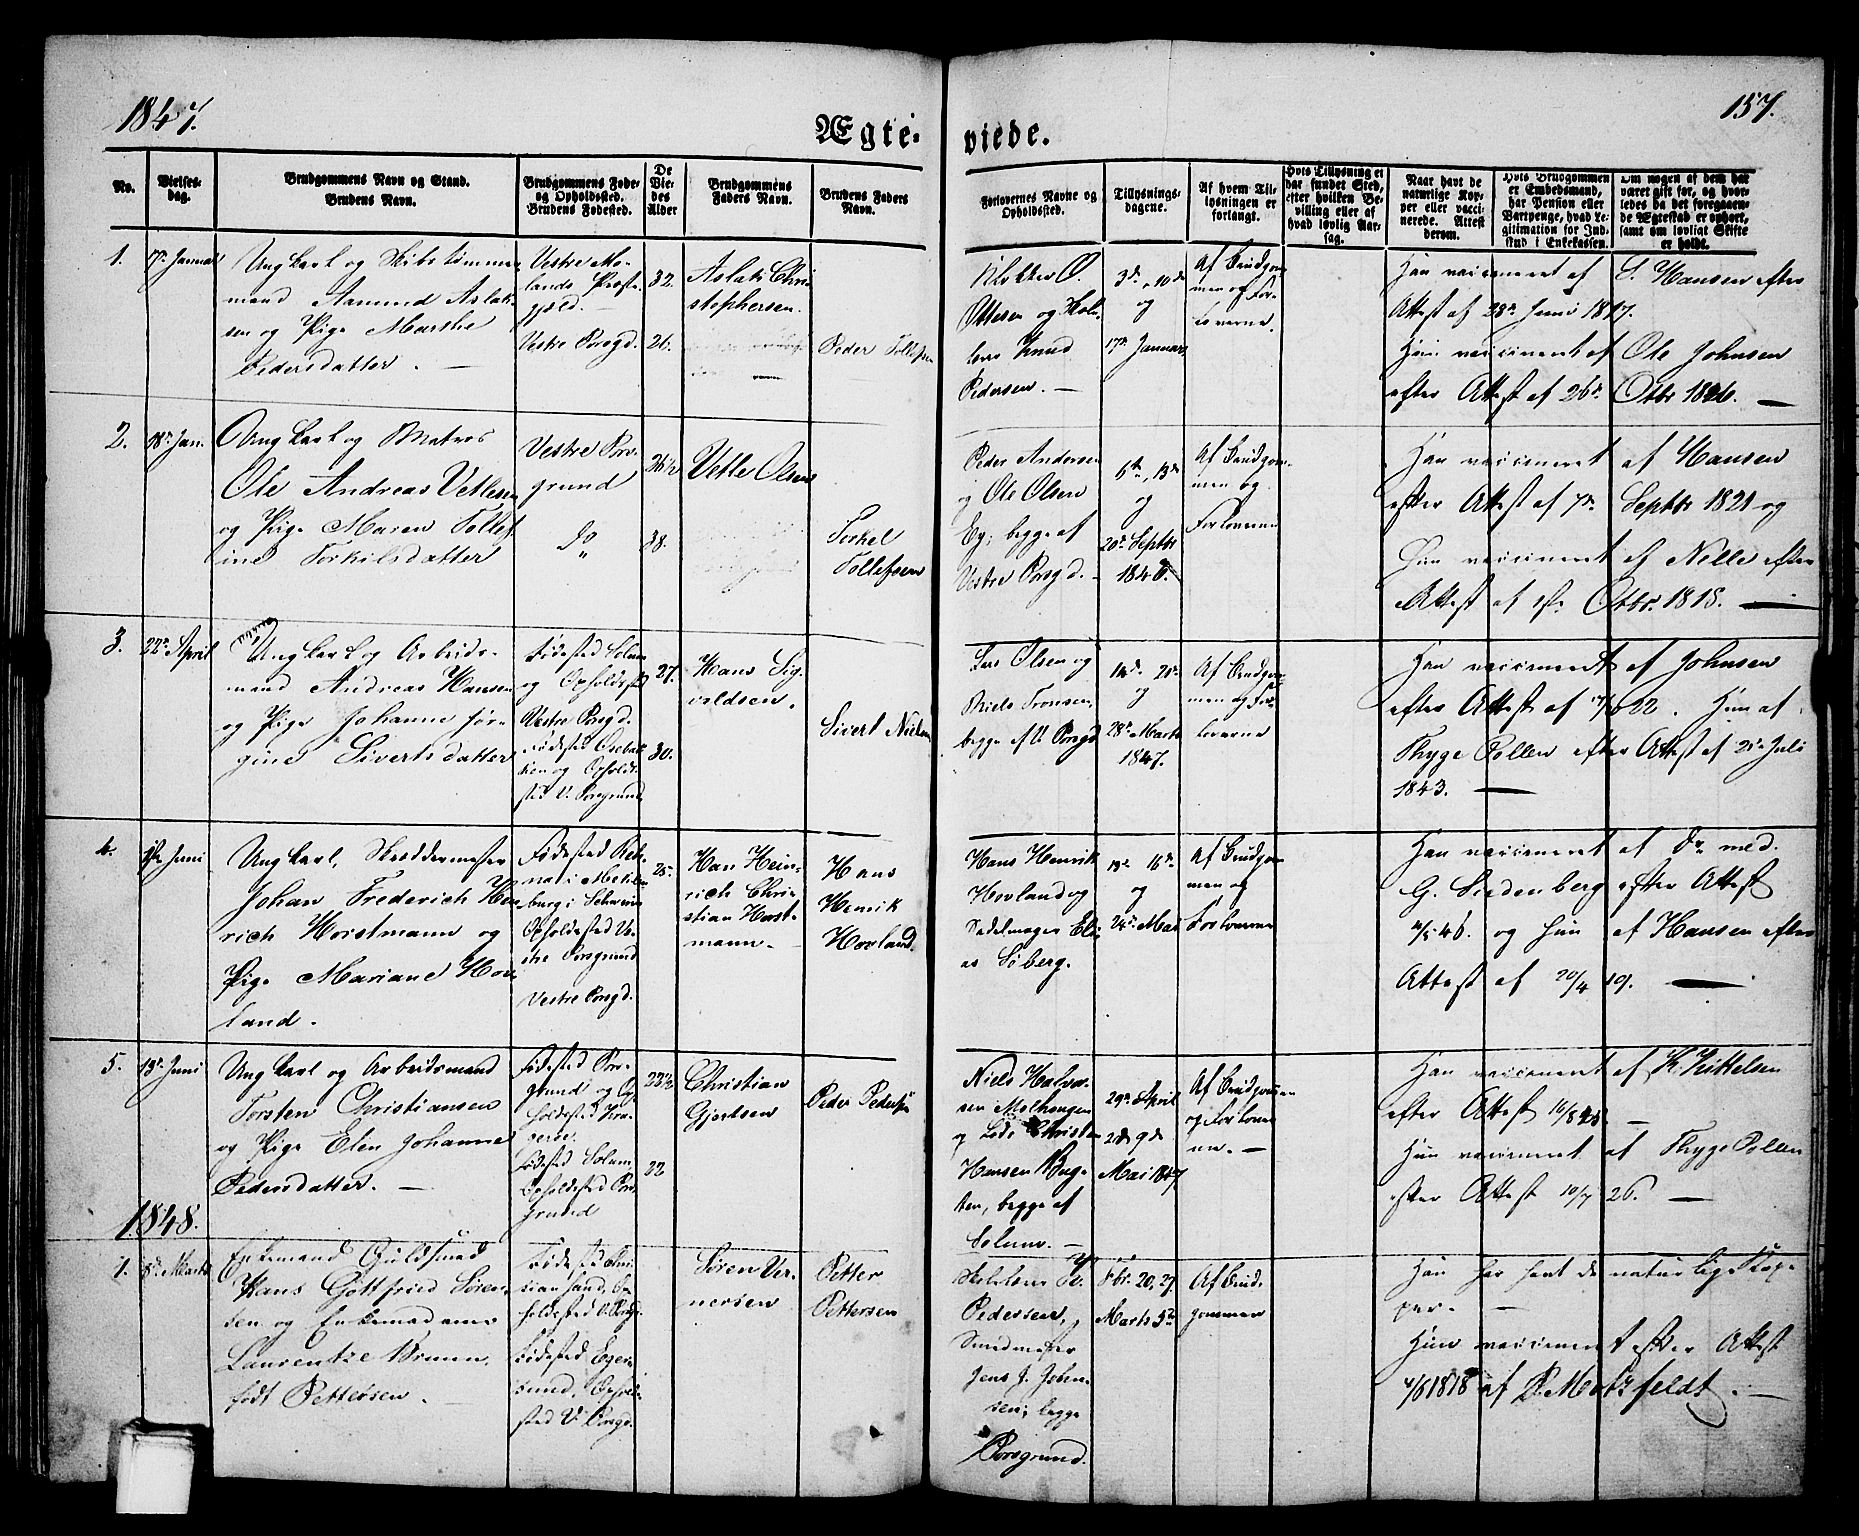 1847.
157.
Ægte-
viede.
No.
Vielses-
dag.
Brudgommens Navn og Stand.
Brudens Navn.
Brudgommens Føde-
og Opholdssted.
Brudens Fødested.
De
Vie-
des
Alder
Brudgommens
Faders Navn.
Brudens Faders
Navn.
Forlovernes Navne og
Opholdssted.
Tillysnings-
dagene.
Af hvem Til-
lysningen er
forlangt.
Hvis Tillysning ei
har fundet Sted,
efter hvilken Be-
villing eller af
hvad lovlig Aar-
sag.
Naar havt de
naturlige Kop-
per eller vacci-
nerede. Attest
derom.
Hvis Brudgommen
er Embedsmand,
har Pension eller
Vartpenge, hvad Le-
gitimation for Ind-
skud i Enkekassen.
Om nogen af dem har
været gift før, og hvor-
ledes da det foregaaen-
de Ægteskab er ophørt,
samt om lovligt Skifte
er holdt.
1.
17de Januar
Ungkarl og Skibstømmer-
mand Aamund Aslak-
sen og Pige Marthe
Pedersdatter. —
Vestre Mo-
lands Præste-
gjeld. —
Vestre Porsgd.
32.
26.
Aslak Chri
stophersen.
Peder Tollefsen
Klokker O.
Ottesen og
Knud
Pedersen. —
3de, 10de
og
17de Januar
Af Brudgom-
men og For-
loverne.
Han vaccineret af S. Hansen efter
Attest af 28de Juni 1817.
Hun vaccineret af Ole Johnsen
efter Attest af 26de Octbr 1826. —
2.
18de Jan.
Ungkarl og Matros
Ole Andreas Vetlesen
og Pige Maren Tollef
ine Torkilsdatter
Vestre Por-
grund
do
26½
38.
Vetle Olsen
Torkel
Tollefsen
Peder Andersen
og Ole Olsen
Eg, begge af
Vestre Porsgd. —
6te, 13de
og
20de Septbr
1846.
Af Brudgom-
men og
Forloverne
Han vaccineret af Hansen
efter Attest af 7de Septbr 1821 og
Hun vaccineret af Nelle efter
Attest af 1ste Octbr. 1815. —
3.
22de April
Ungkarl og Arbeids-
mand Andreas Hansen
og Pige Johanne Jør-
gine Sivertsdatter
Fødested Solum
og Opholdsted
Vestre Porsgd.
Fødested Osebak-
ken og Opholds-
sted V. Porsgrund.
27.
30.
Hans Sig
valdsen.
Sivert Nielsen
Lars Olsen og
Niels Tronsen,
begge af V. Porsgd
14de, 21de
og
28de Marts
1847.
Af Brudgom-
men og For-
loverne
Han vaccineret af Johnsen
efter Attest af 22. Hun af
Thyge Pollen efter Attest af 21de Juli
1843. —
4.
1ste Juni
Ungkarl, Skreddermester
Johan Frederich Hin
rich Horstmann og
Pige Mariane Hov
land.
Fødested Reh-
na i Meklen-
burg i Schwerin
Opholdested Ve-
stre Porsgrund
Vestre Porsgd.
25.
Han Hein-
rich Chri-
stian Horst-
mann. —
Hans
Henrik
Hovland.
Hans Henrik
Hovland og
Sadelmager Eli-
as Söberg.
13de 16de
og
24de Mai
Af Brudgom-
men og
Forloverne
Han vaccineret af Dr. med.
G. Siedenberg efter Attest
46. og Hun af Hansen efter
Attest af 20/4 19. —
5.
13de Juni
Ungkarl og Arbeidsmand
Torsten Christiansen
og Pige Elen Johanne
Pedersdatter. —
Fødested Pors-
grund og Op-
holdsted Kra-
gerøe.
Fødested Solum,
Opholdested Pors-
grund
23½
22
Christian
Gjertsen
Peder Pedersen
Niels Halvor-
sen Molhougen
og Christen
Hansen Bug-
ten, begge af
Solum. —
29de April
2de 9de
Mai 1847
Af Brudgommen
og Forlover-
ne. —
Han vaccineret af K. Kittelsen
efter Attest —
Hun vaccineret af Thyge Pollen
efter Attest 10/7 26. —
1848.
1.
5te Marts
Enkemand Guldsmed
Hans Gottfried Søren-
sen og Enkemadame
Laurentze Bruun,
født Pettersen. —
Fødested Chri-
stiansand, Op-
holdsted V. Porsgr
Fødested Eger-
sund, Ophold-
sted V. Porsgd.
Søren Ver-
nersen
Petter
Pettersen
Skolelærer
Pedersen,
Smedmester
Jens J. John-
sen, begge
Porsgrund.
Fbr. 20, 27,
Marts 5te
Af Brud-
gommen
Han har havt de naturlige Kop-
per. —
Hun vaccineret efter Attest
1818 af P. Motzfeldt. —